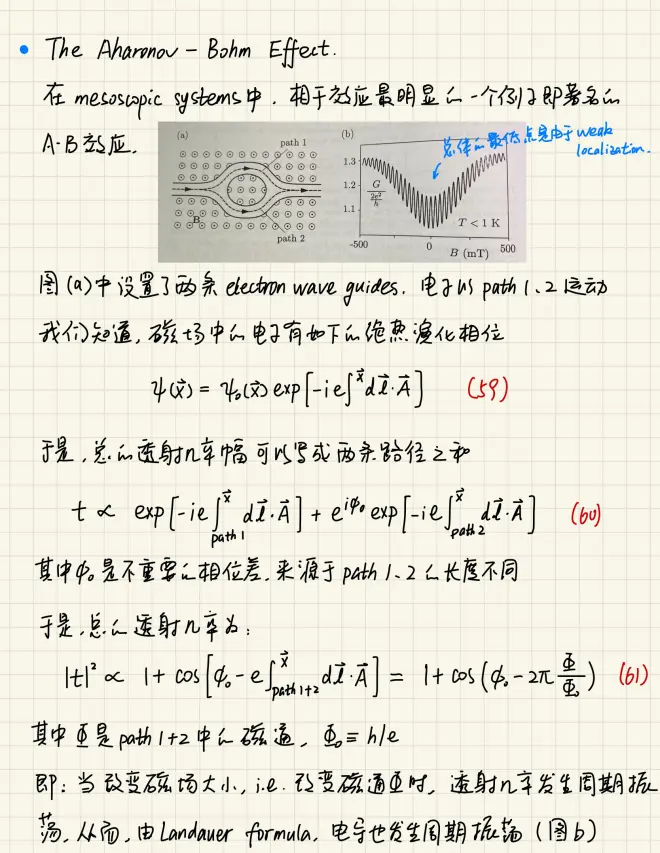 • The Aharonov-Bohm Effect.
在 mesoscopic systems中, 相干效应最明显的一个例子即著名的
A-B效应.
(a)
path 1
B
path 2
(b)
总体的最低点是由于weak
localization.
1.3
1.2
1.1
G
2e²
h
T < 1 K
-500
0
500
B (mT)
图(a)中设置了两条 electron wave guides. 电子以 path 1、2 运动
我们知道, 磁场中的电子有如下的绝热演化相位
ψ(x⃗) = ψ₀(x⃗) exp[-ie∫^x⃗ dl⃗·A⃗] (59)
于是, 总的透射几率幅可以写成两条路径之和
t ∝ exp[-ie∫_path1^x⃗ dl⃗·A⃗] + e^{iϕ₀} exp[-ie∫_path2^x⃗ dl⃗·A⃗] (60)
其中ϕ₀是不重要的相位差, 来源于 path 1、2 的长度不同
于是, 总的透射几率为:
|t|² ∝ 1 + cos[ϕ₀ - e∫_path1+2^x⃗ dl⃗·A⃗] = 1 + cos(ϕ₀ - 2π Φ/Φ₀) (61)
其中Φ是path 1+2 中的磁通, Φ₀ ≡ h/e
即: 当改变磁场大小, i.e. 改变磁通Φ时, 透射几率发生周期振
荡, 从而, 由Landauer formula, 电导也发生周期振荡 (图b)